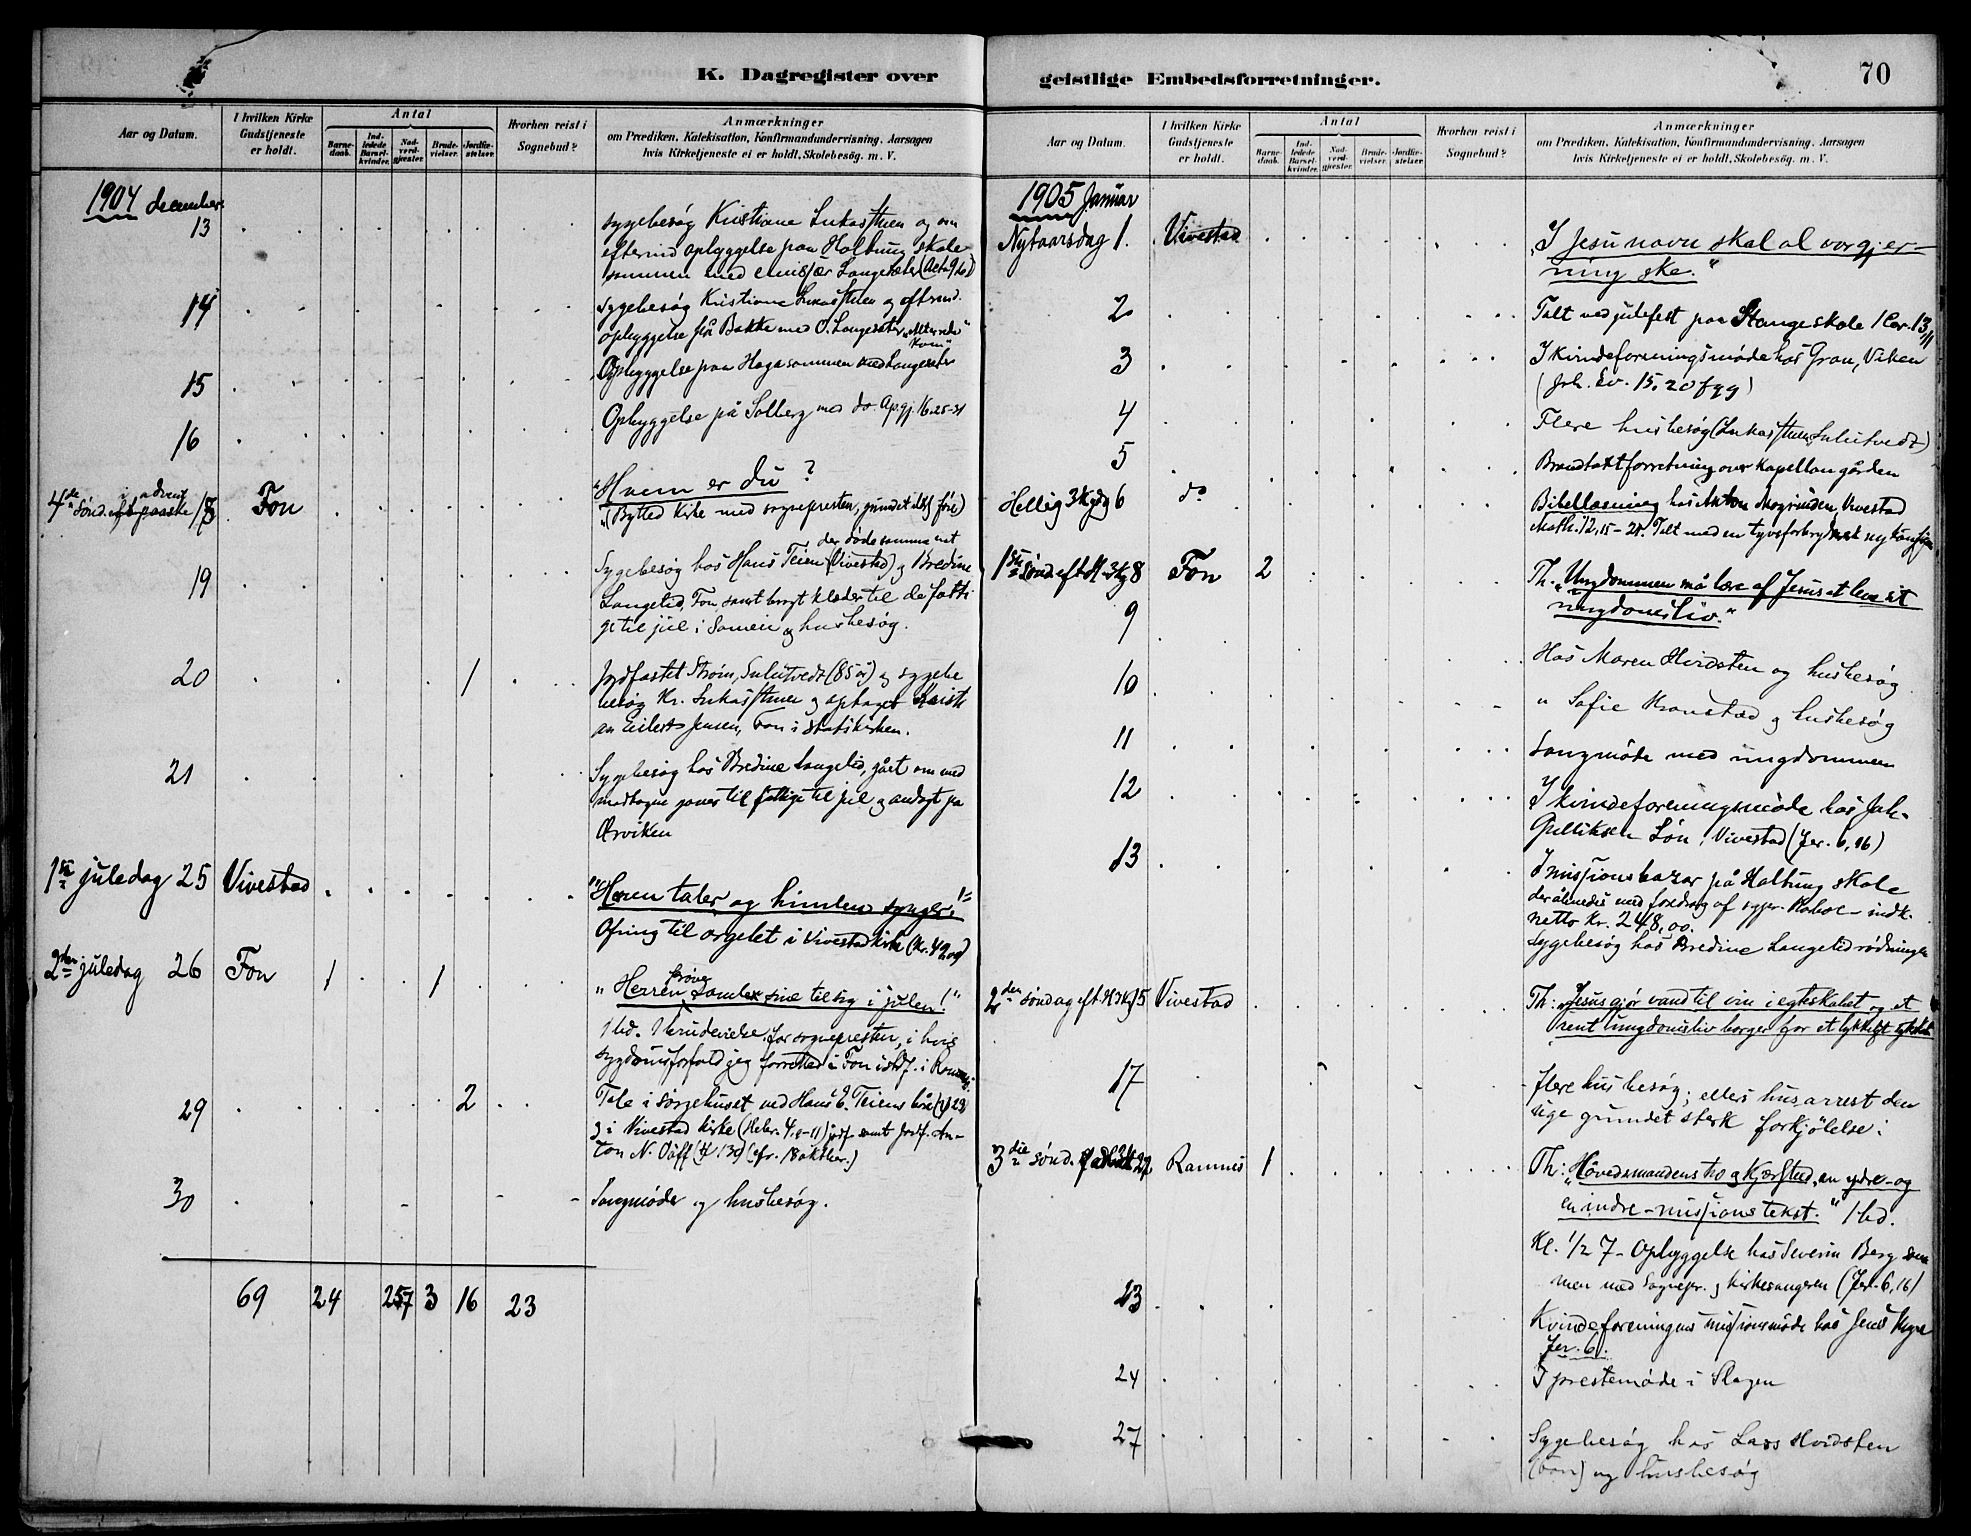 K. Dagregister over
Aar og Datum.
I hvilken Kirke
Gudstjeneste
er holdt.
Antal
Barne-
daab.
Ind-
ledede
Barsel-
kvinder.
Nad-
verd-
gjæster.
Brude-
vielser.
Jordfæ-
stelser.
Hvorhen reist i
Sognebud?
Anmærkninger
om Prædiken, Katekisation, Konfirmandundervisning, Aarsagen
hvis Kirketjeneste ei er holdt, Skolebesög. m. V.
1904 december
13
sygebesøg Kristiane Lukas og om
eftermd opbyggelse paa Haltung skole
sammen med emissær Langesæter
14
sygebesøg Kristiane og eftmd.
opbyggelse på Bakke med O. Langesæter
15
Opbyggelse paa Haga sammen med Langesæter
16
Opbyggelse på Solberg med do. Apgj. 16. 25-31
4de sønd. i advent 18 Fon
"Hvem er du?
(Byttet kirke med sognepresten, grundet føre)
19
der døde samme nat
Sygebesøg hos Hans Teien (Vivestad) og Bredine
Langelid, Fon, samt bragt klæder til de fatti
ge til jul i og husbesøg.
20 1
Jordfæstet Strøm, Sulutvedt (85 år) og sygebe
besøg Kr. Lukas og optaget Kristi
an Eilert Jensen, Fon i statskirken.
21
Sygebesøg hos Bredine Langelid, gået om med
gaver til fattige til jul og andagt på
Ørviken
1ste juledag 25 Vivestad
"Herren taler og himlen synger."
Ofring til orgelet i Vivestad kirke
2den juledag 26 Fon 1 1
"Herren prøver samle sine til sig i julen!"
1 bd. 1 brudevielse for sognepresten, i hvis
sygdomsforfald jeg forrettede i Fon istedf. i Ramnes.
29 2
Tale i sørgehuset ved Hans E. Teiens båre
og i Vivestad kirke (Hebr. 4, 9-11) jordf. samt jordf. An-
ton N.
30
Sangmøde og husbesøg.
69 24 257 3 16 23
geistlige Embedsforretninger.
70
Aar og Datum.
I hvilken Kirke
Gudstjeneste
er holdt.
Antal
Barne-
daab.
Ind-
ledede
Barsel-
kvinder.
Nad-
verd-
gjæster.
Brude-
vielser.
Jordfæ-
stelser.
Hvorhen reist i
Sognebud?
Anmærkninger
om Prædiken, Katekisation, Konfirmandundervisning, Aarsagen
hvis Kirketjeneste ei er holdt, Skolebesög. m. V.
1905 Januar
Nytaarsdag 1. Vivestad
"I Jesu navn skal al vor gjer-
ning ske."
2
Talt ved julefest paa Stange skole 1 Cor. 13,11
3
I kvindeforeningsmøde hos Gran, Viken
(Joh. Ev. 15, 20 fgg)
4
Flere husbesøg (Lukas Sulutvedt)
5
Brandtakstforretning over kapellangården
Hellig 3 kgdg 6 do
Bibellæsning hos Anton Skogrinden, Vivestad
Math. 12, 15-21. Talt med en
1ste sønd. eft. H. 3 kg 8 Fon 2
Th. "Ungdommen må lære af Jesus at leve sit
ungdomsliv."
9
Hos Maren Hvidsten og husbesøg
10
" Sofie Kronstad og husbesøg
11
Sangmøde med ungdommen
12
I kvindeforeningsmøde hos Joh.
Gulliksen Løn, Vivestad (Jer. 6, 16)
13
I missionsbazar på Haltung skole
der åbnedes med foredrag af sgpr. - indk.
netto kr. 248,00.
Sygebesøg hos Bredine Langelid
2den søndag eft. H 3 kg 15 Vivestad
Th: "Jesus gjør vand til vin i egteskabet og et
rent ungdomsliv borger for et lykkeligt egteskab
17
flere husbesøg; ellers husarrest den
uge grundet sterk forkjølelse:
3die sønd. 22 Ramnes 1
Th: "Høvedsmandens tro og kjærlighed, en ydre- og
en indre-missionstekst." 1 bd.
Kl. 1/2 7 - Opbyggelse hos Severin Berg sam
men med sognepr. og kirkesangeren (Jer. 6, 16)
23
Kvindeforeningens missionsmøde hos Jens
Jer. 6.
24
I prestemøde i Slagen
27
Sygebesøg hos Lars Hvidsten
(Fon) og husbesøg